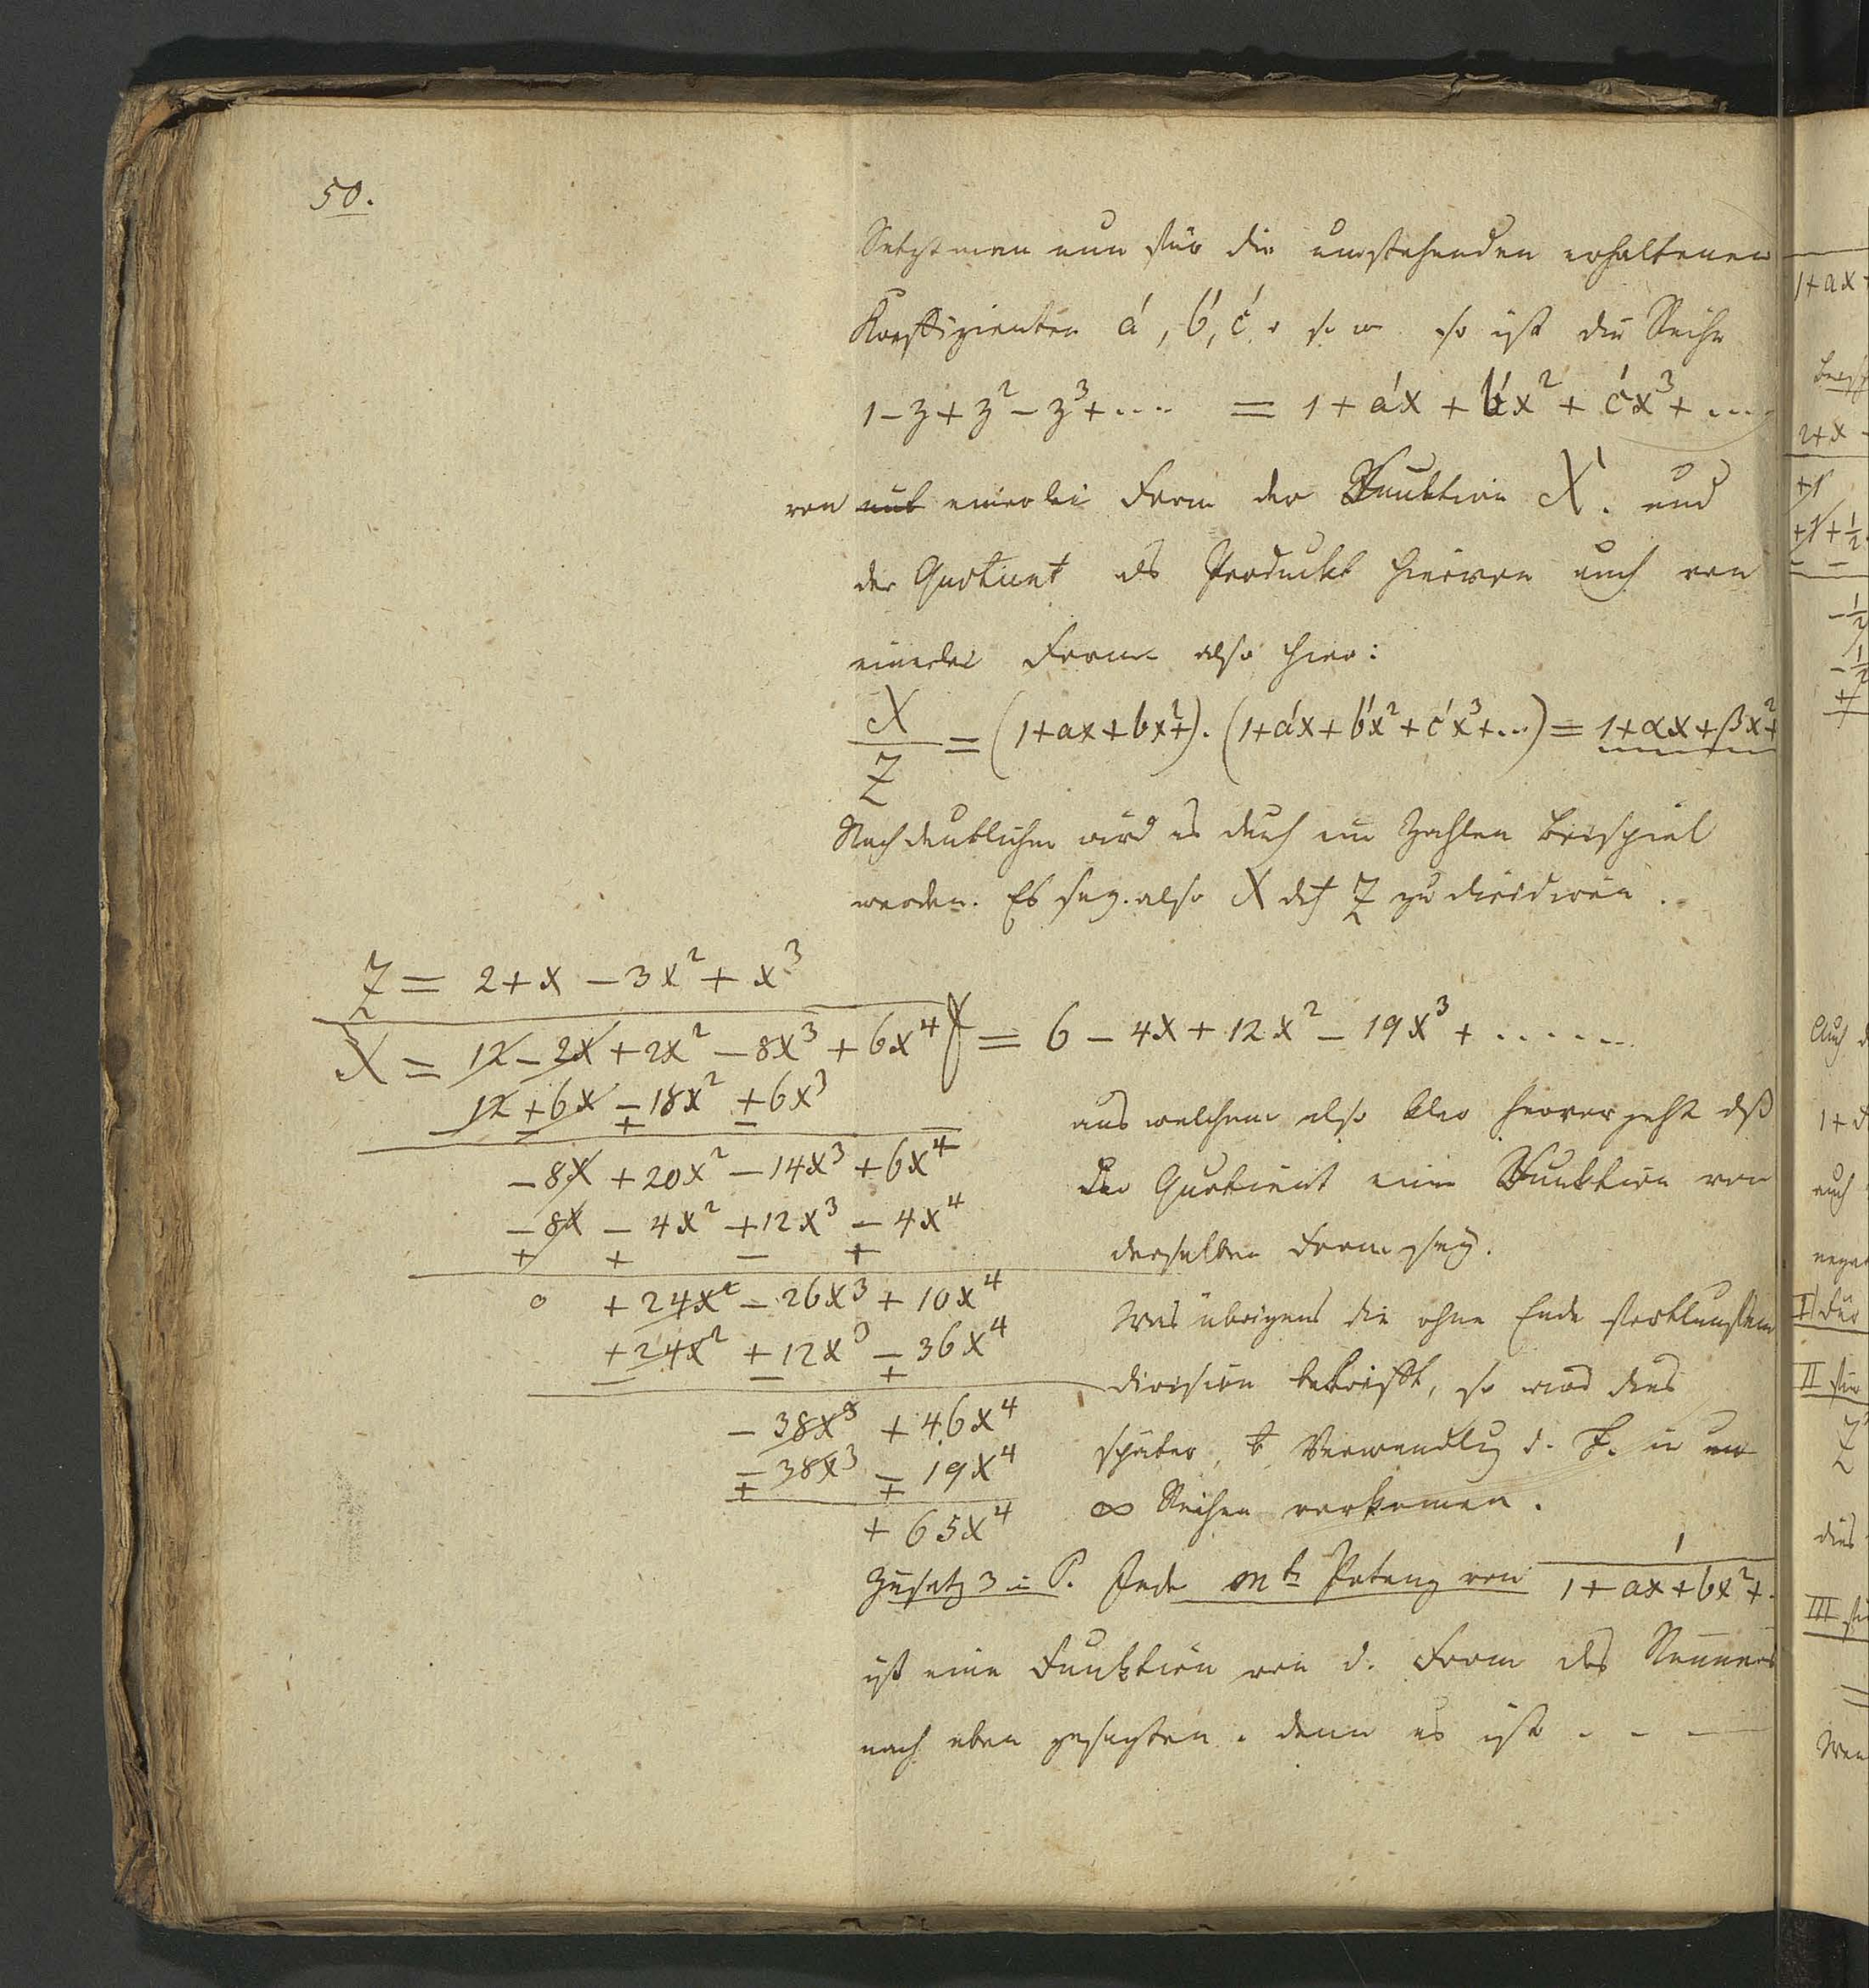 50.
Setzt man nun für die umstehenden erhaltenen
Koeffizienten á, b́, ć, u s. w. so ist die Reihe
1 - z + z² - z³ + ... = 1 + áx + b́x² + ćx³ + ...
von einerlei Form der Funktion X. und
der Quotient als Produckt hievon auch von
einerlei Form also hier:
X/Z = (1+ax+bx²+).(1+áx+b́x²+ćx³+...) = 1+αx+βx²+
Noch deutlicher wird es durch ein Zahlen Beispiel
werden. Es sey. also X dch Z zu dividiren.
Z = 2+x - 3x² + x³
X = 12 - 2x + 2x² - 8x³ + 6x⁴ = 6 - 4x + 12x² - 19x³ + ......
12 + 6x - 18x² + 6x³
- - + -
- 8x + 20x² - 14x³ + 6x⁴
- 8x - 4x² + 12x³ - 4x⁴
+ + - +
0 + 24x² - 26x³ + 10x⁴
+ 24x² + 12x³ - 36x⁴
- - +
- 38x³ + 46x⁴
- 38x³ - 19x⁴
+ +
+ 65x⁴
aus welchem also klar hervorgeht dß
der Quotient eine Funktion von
derselben Form sey.
Was übrigens die ohne Ende fortlaufende
Division betrifft, so wird dies
später, b Verwandlg d. F. in
∞ Reihen vorkomen.
Zusatz 3 Jede mte Potenz von 1/(1+ax+bx²+.
ist eine Funktion von d. Form des Nenners
nach eben gesagten. denn es ist - - -
1+ax+
2+x -
+1
+1+½
- -
-½
-½
+
Auch
1+
auch
I) Für
II für
Z
dies
III